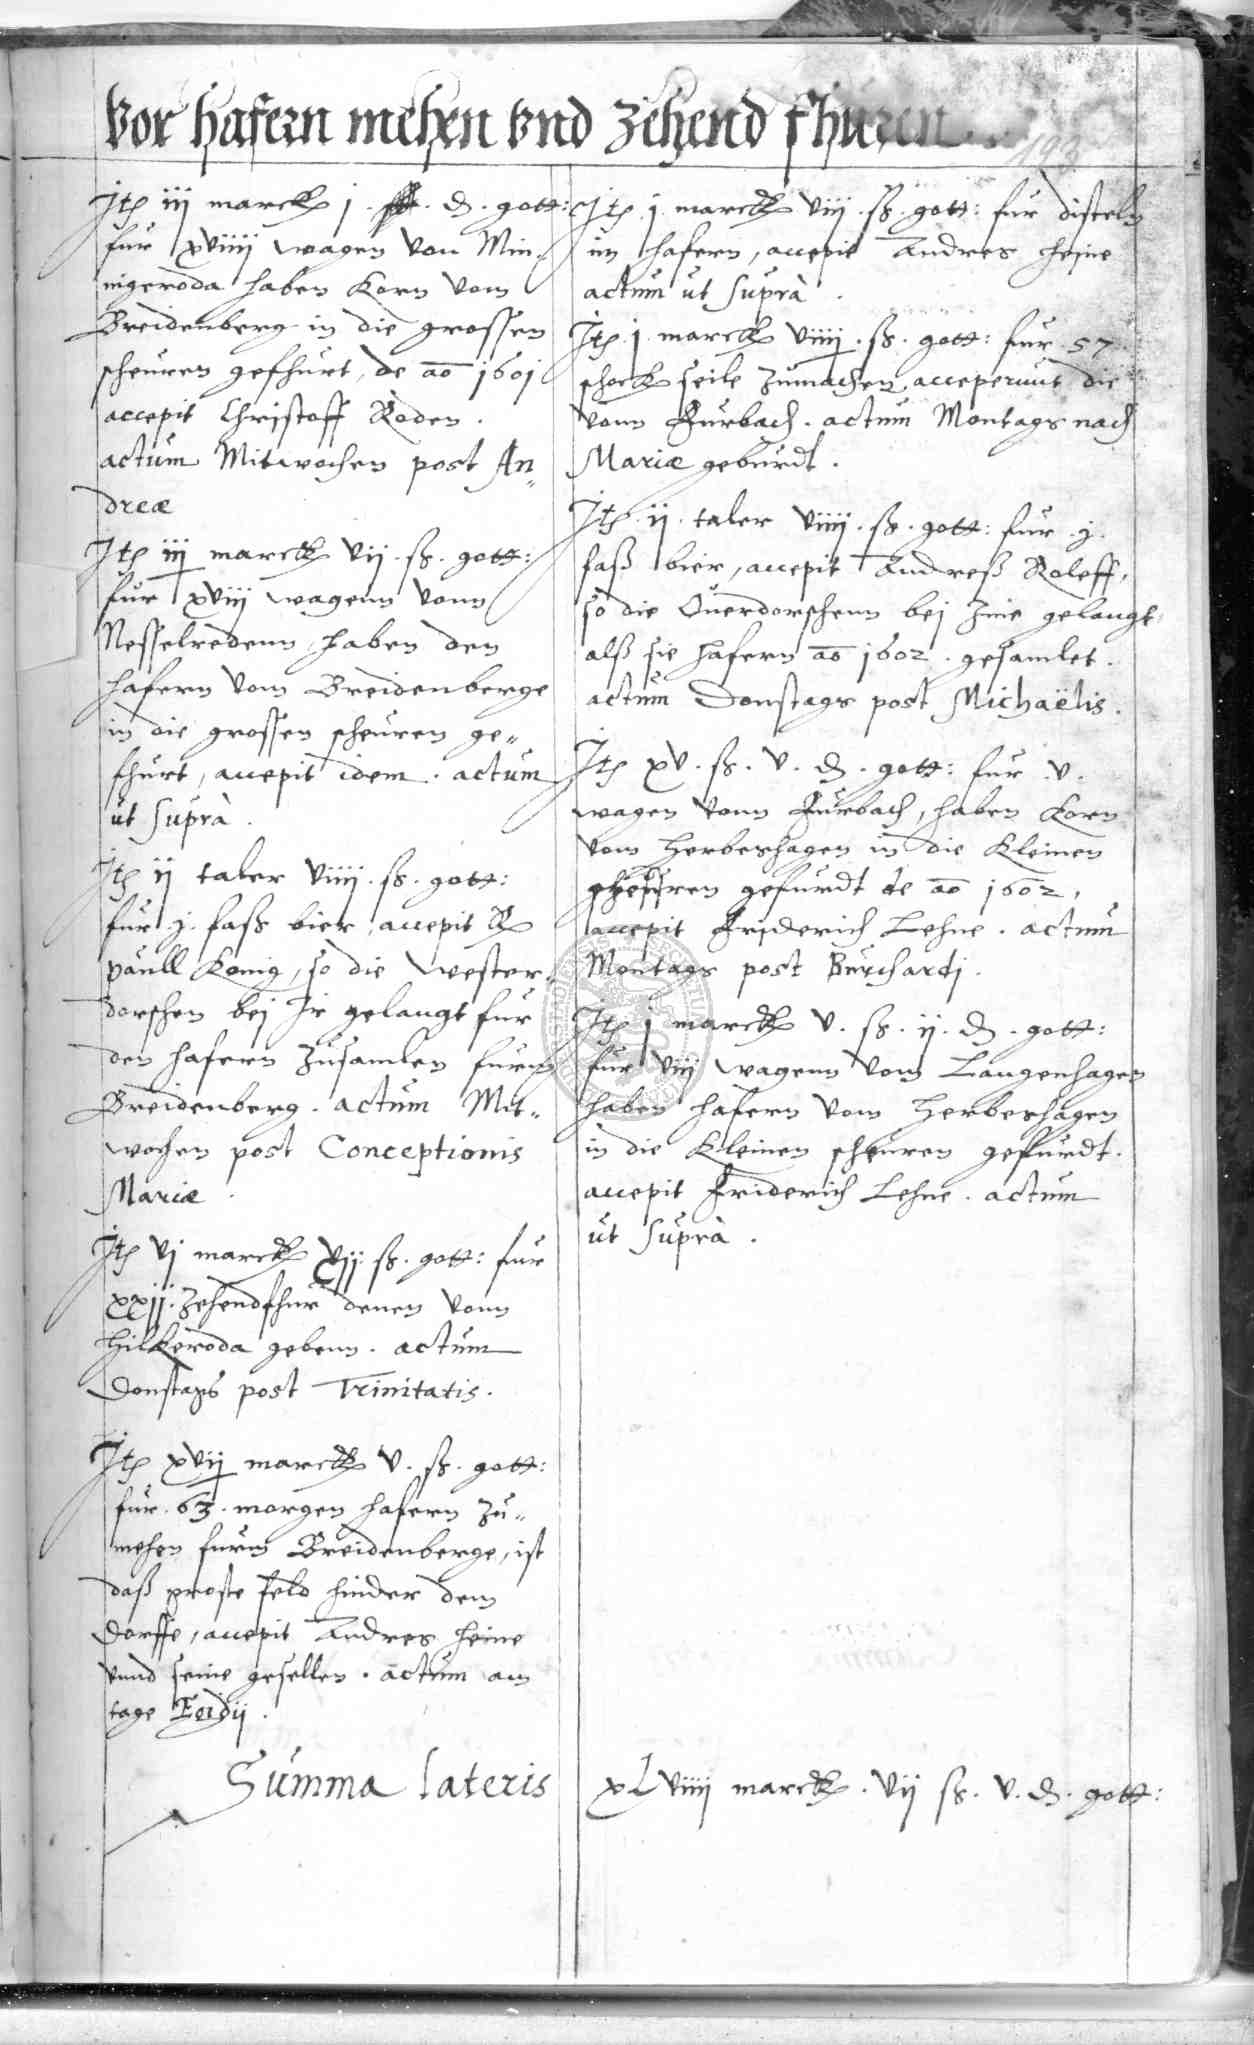 Vor hafern mehen vnd zehend fhuren
193
Itē iii marck j. ₰. gott:
fur xviiii wagen von Min„
nigeroda haben Korn vom
Breidenberg in die grossen
scheuren gefhurt, de aō 1601
accepit Christoff Roden.
actum Mitwochen post An„
dreæ
Itē iii marck vii. ß. gott:
fur xviii wagenn vonn
Nesselredenn, haben den
hafern vom Breidenberge
in die grossen scheuren ge„
fhurt, accepit idem. actum
ut suprà.
Itē ii taler viiii. ß. gott:
fur .j. faß bier, accepit
paull Konig, so die wester„
dorschen bej Ir gelangt fur
den hafern zusamlen furm
Breidenberg. actum Mit„
wochen post Conceptionis
Mariæ.
Itē vj marck vjj. ß. gott: fur
xxjj. zehendfhur denen vonn
Hilkeroda gebenn. actum
Donstags post Trinitatis.
Itē xvij marck v. ß. gott:
fur. 63. morgen hafern zu„
mehen furm Breidenberge, ist
daß groste feld hinder dem
Dorffe, accepit Andres heine
vnnd seine gesellen. actum am
tage Egidij.
Itē j. marck viij. ß. gott: fur disteln
im hafern, accepit Andres heine
actum ut suprà.
Itē j. marck viiij. ß. gott: fur 57
schock seile zumachen acceperunt die
vonn Furbach. actum Montags nach
Mariæ geburdt.
Itē. ij. taler viiij. ß. gott: fur .j.
faß bier, accepit Andreß Roleff,
so die Ouerdorschenn bej Ime gelangt
alß sie hafern aō 1602. gesamlet.
actum Donstags post Michaëlis.
Itē xv. ß. v. ₰. gott: fur .v.
wagen vonn Furbach, haben Korn
vom Herbeshagen in die Kleinen
scheuren gefurdt de aō 1602,
accepit Friderich Lehne. actum
Montags post Burchardj.
Itē j marck v. ß. ij. ₰. gott:
fur viij wagenn vom Langenhagen
haben hafern vom Herbeshagen
in die Kleinen scheuren gefurdt.
accepit Friderich Lehne. actum
ut suprà.
Summa lateris xLviiij marck. vij ß. v. ₰. gott: